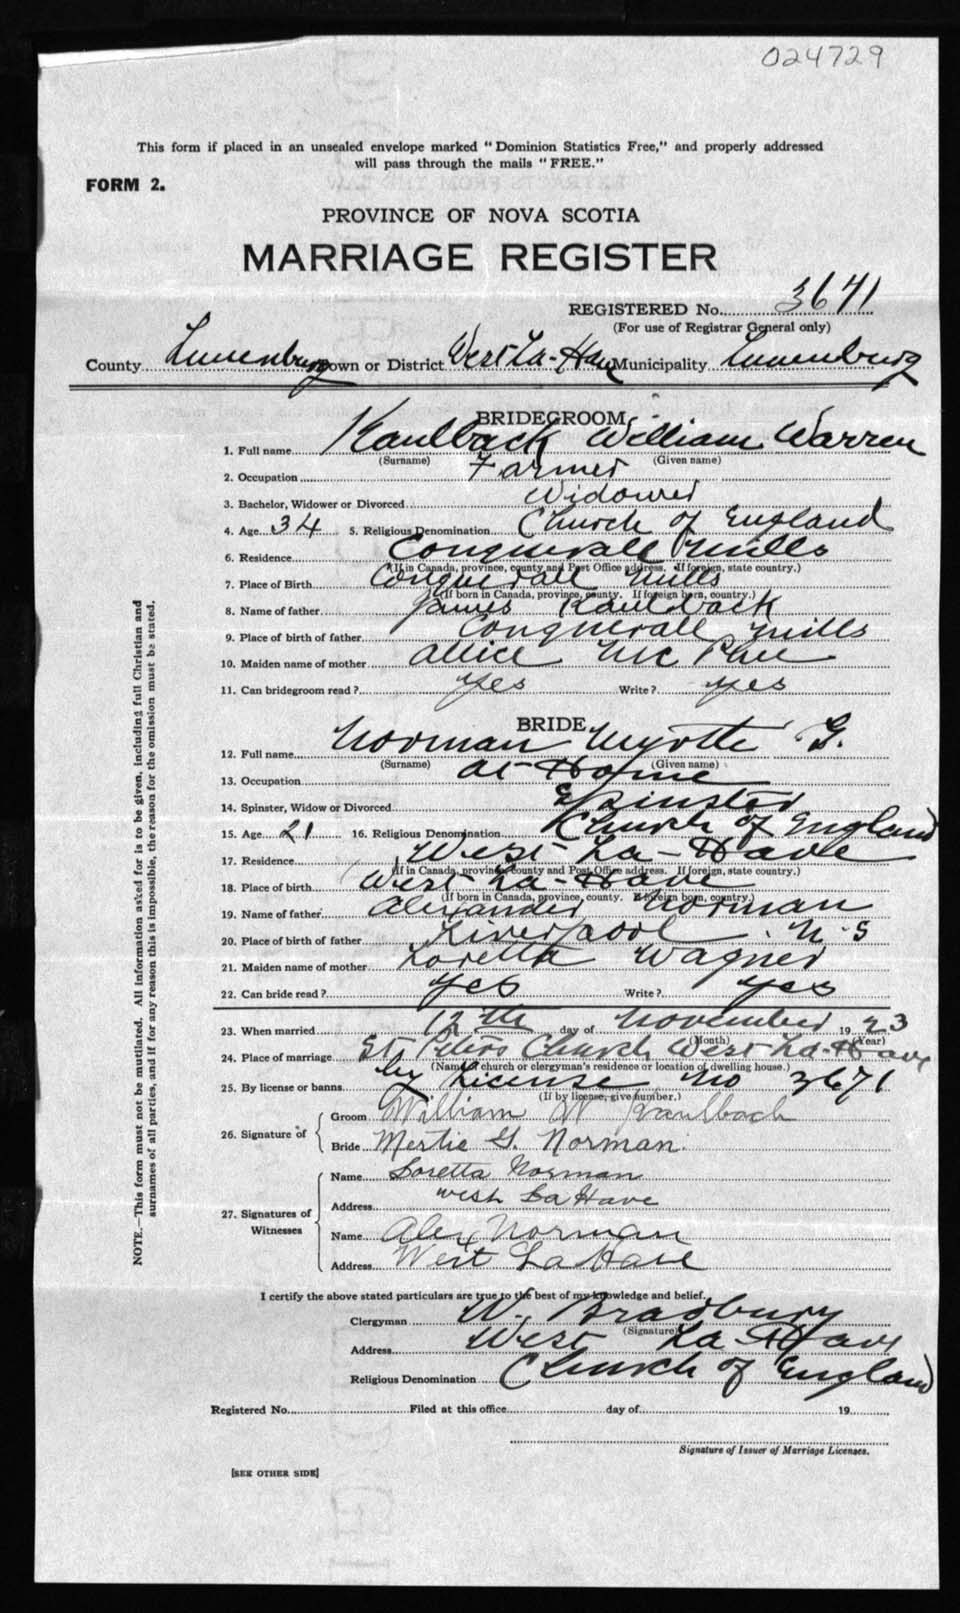 024729
This form if placed in an unsealed envelope marked "Dominion Statistics Free," and properly addressed
will pass through the mails "FREE."
FORM 2.
PROVINCE OF NOVA SCOTIA
MARRIAGE REGISTER
REGISTERED No. 3671
(For use of Registrar General only)
County Lunenburg Town or District West La-Have Municipality Lunenburg
BRIDEGROOM
1. Full name Kaulback William Warren
(Surname) (Given name)
2. Occupation Farmer
3. Bachelor, Widower or Divorced Widower
4. Age 34 5. Religious Denomination Church of England
6. Residence Conquerall Mills
(If in Canada, province, county and Post Office address. If foreign, state country.)
7. Place of Birth Conquerall Mills
(If born in Canada, province, county. If foreign born, country.)
8. Name of father James Kauldback
9. Place of birth of father Conquerall Mills
10. Maiden name of mother Allice Mc Phee
11. Can bridegroom read? yes Write? yes
BRIDE
12. Full name Norman Myrtle G.
(Surname) (Given name)
13. Occupation at-Home
14. Spinster, Widow or Divorced Spinster
15. Age 21 16. Religious Denomination Church of England
17. Residence West La-Have
(If in Canada, province, county and Post Office address. If foreign, state country.)
18. Place of birth West-La-Have
(If born in Canada, province, county. If foreign born, country.)
19. Name of father Alexander Norman
20. Place of birth of father Liverpool. N.S
21. Maiden name of mother Loretta Wagner
22. Can bride read? yes Write? yes
23. When married 12th day of November 1923
(Month) (Year)
24. Place of marriage St Peters Church West La-Have
(Name of church or clergyman's residence or location of dwelling house.)
25. By license or banns by License No 3671
(If by license, give number.)
26. Signature of
Groom William W Kaulbach
Bride Mertie G. Norman.
27. Signatures of Witnesses
Name Loretta Norman
Address West La Have
Name Alex Norman
Address West La Have
I certify the above stated particulars are true to the best of my knowledge and belief.
Clergyman W. Bradbury
(Signature)
Address West La Have
Religious Denomination Church of England
Registered No. Filed at this office day of 19
Signature of Issuer of Marriage Licenses.
[SEE OTHER SIDE]
NOTE.—This form must not be mutilated. All information asked for is to be given, including full Christian and
surnames of all parties, and if for any reason this is impossible, the reason for the omission must be stated.